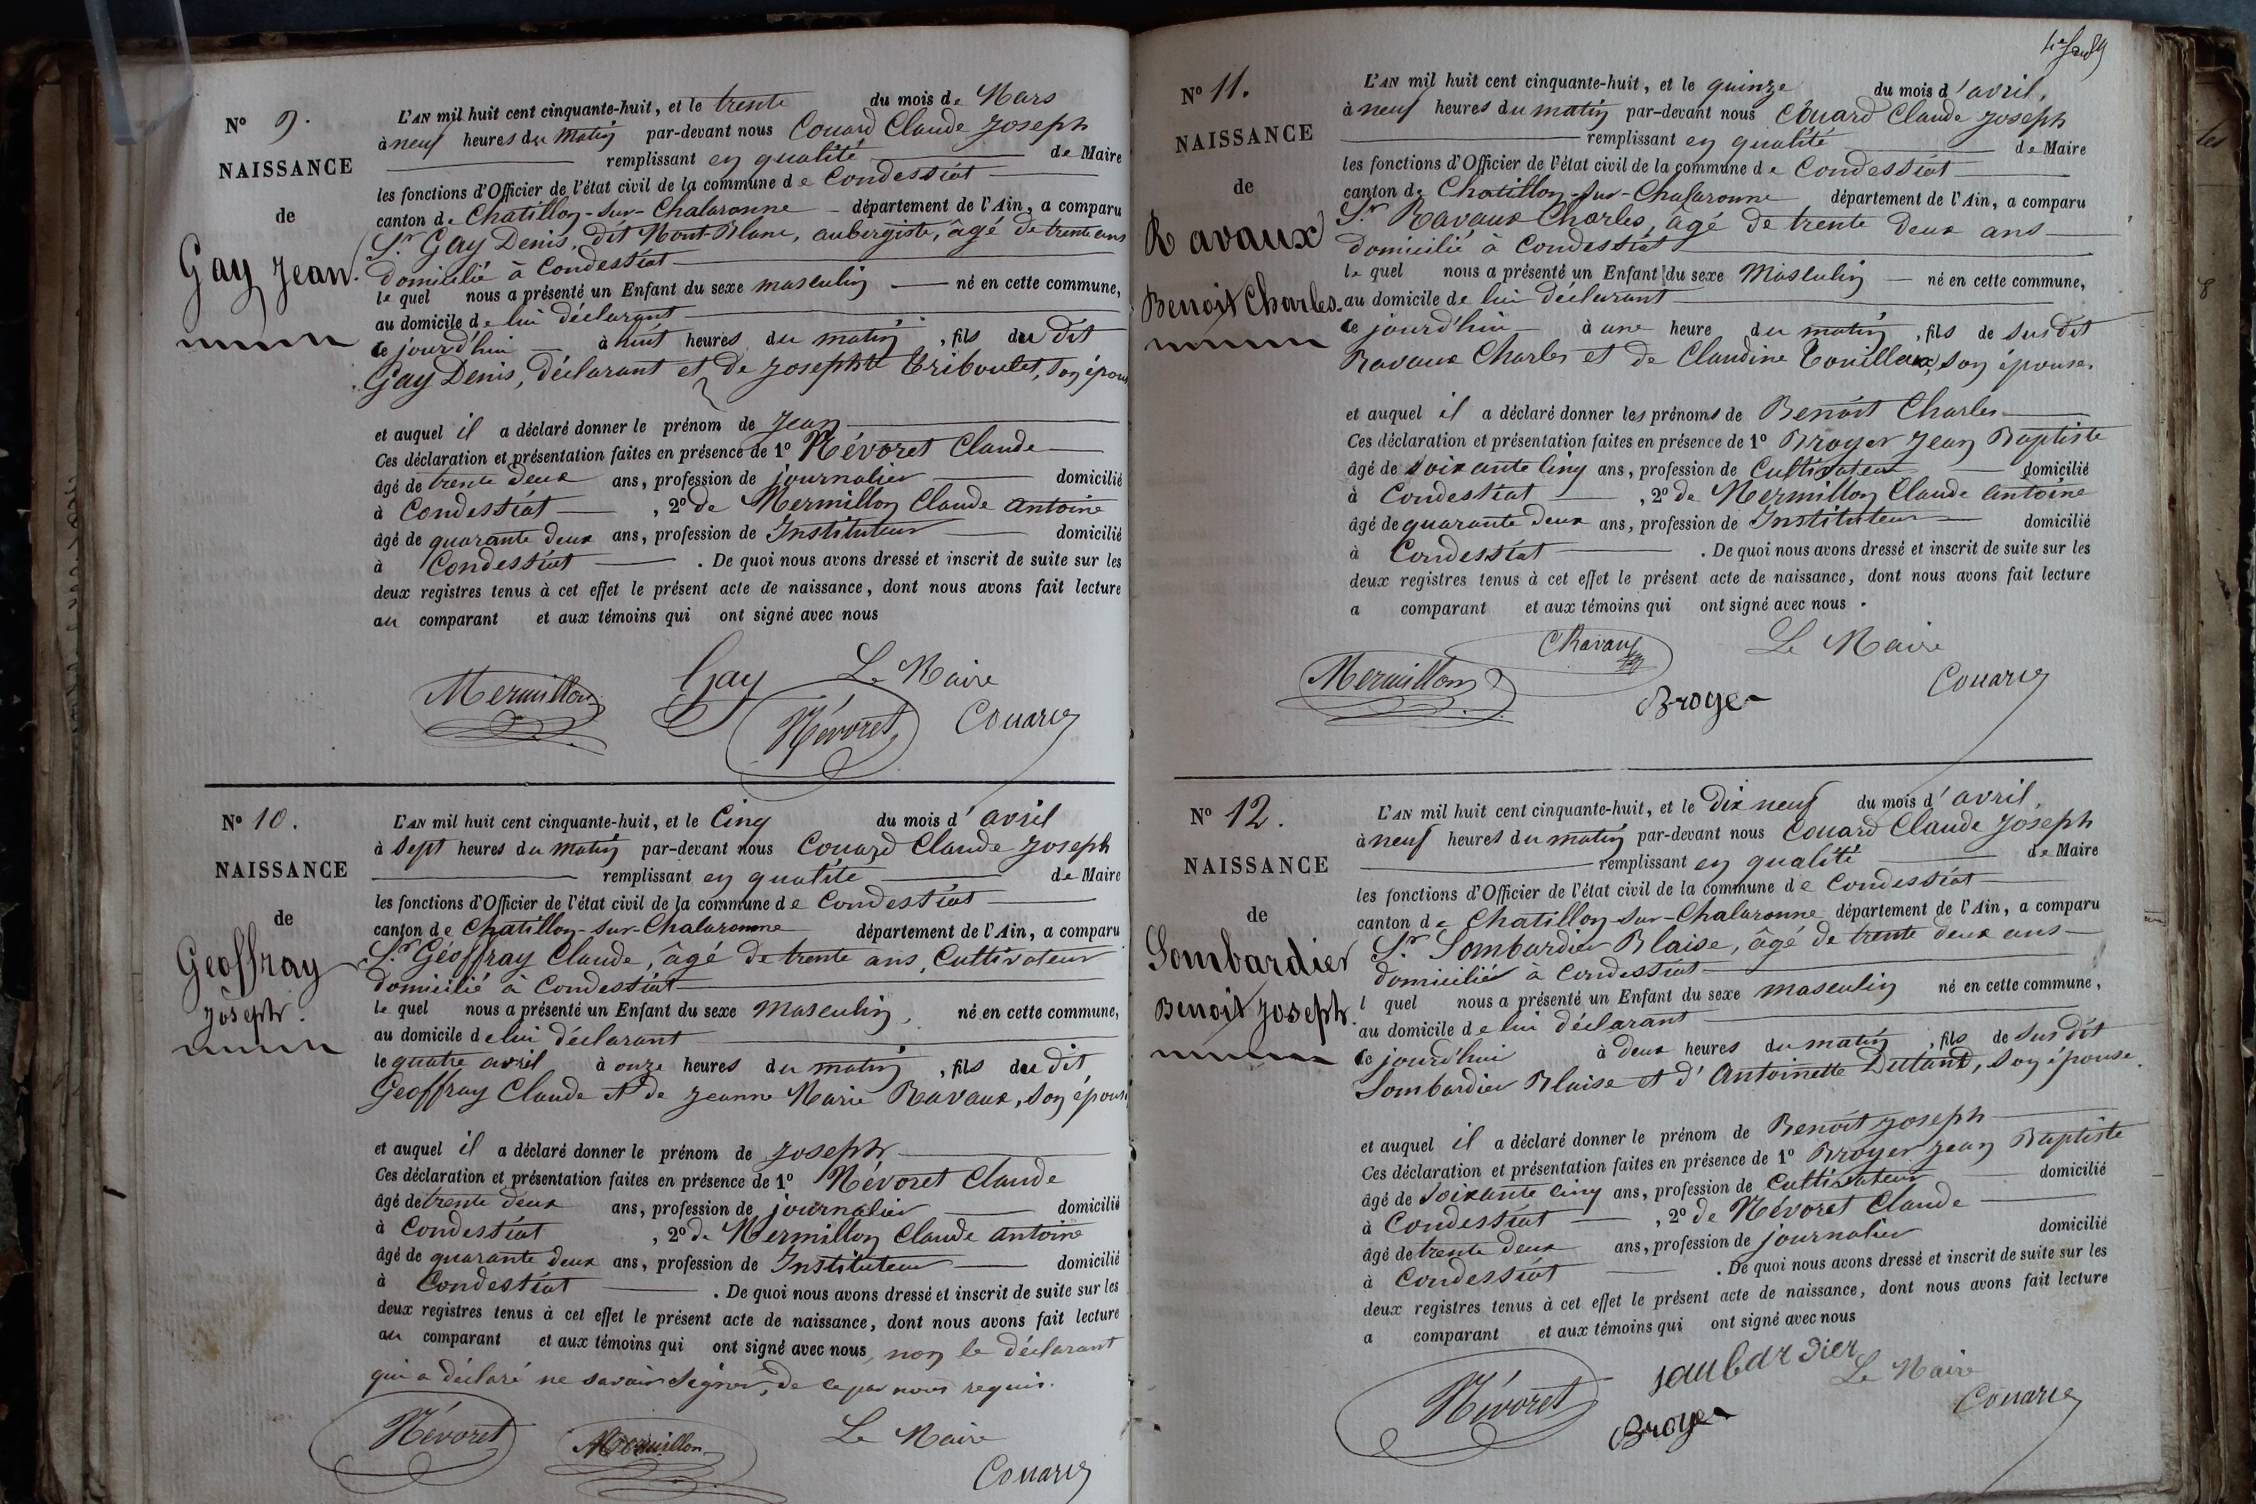 N° 9.
NAISSANCE
de
Gay Jean.
L'AN mil huit cent cinquante-huit, et le trente du mois de Mars
à neuf heures du matin par-devant nous Couard Claude Joseph
remplissant en qualité de Maire
les fonctions d'Officier de l'état civil de la commune de Condessiat
canton de Chatillon-sur-Chalaronne département de l'Ain, a comparu
Sr Gay Denis, dit Mont-Blanc, aubergiste, âgé de trente ans
domicilié à Condessiat
le quel nous a présenté un Enfant du sexe masculin né en cette commune,
au domicile de lui déclarant
ce jourd'hui à huit heures du matin, fils du dit
Gay Denis, déclarant et de Josephte Triboulet, son épouse
et auquel il a déclaré donner le prénom de Jean
Ces déclaration et présentation faites en présence de 1° Névoret Claude
âgé de trente deux ans, profession de journalier domicilié
à Condessiat, 2° de Mermillon Claude Antoine
âgé de quarante deux ans, profession de Instituteur domicilié
à Condessiat. De quoi nous avons dressé et inscrit de suite sur les
deux registres tenus à cet effet le présent acte de naissance, dont nous avons fait lecture
au comparant et aux témoins qui ont signé avec nous
Mermillon Gay Le Maire
Névoret Couard
N° 10.
NAISSANCE
de
Geoffray
Joseph.
L'AN mil huit cent cinquante-huit, et le cinq du mois d'avril
à sept heures du matin par-devant nous Couard Claude Joseph
remplissant en qualité de Maire
les fonctions d'Officier de l'état civil de la commune de Condessiat
canton de Chatillon-sur-Chalaronne département de l'Ain, a comparu
Sr Géoffray Claude, âgé de trente ans, Cultivateur
domicilié à Condessiat
le quel nous a présenté un Enfant du sexe Masculin, né en cette commune,
au domicile de lui déclarant
le quatre avril à onze heures du matin, fils du dit
Geoffray Claude et de Jeanne Marie Ravaux, son épouse
et auquel il a déclaré donner le prénom de Joseph
Ces déclaration et présentation faites en présence de 1° Névoret Claude
âgé de trente deux ans, profession de journalier domicilié
à Condessiat, 2° de Mermillon Claude Antoine
âgé de quarante deux ans, profession de Instituteur domicilié
à Condessiat. De quoi nous avons dressé et inscrit de suite sur les
deux registres tenus à cet effet le présent acte de naissance, dont nous avons fait lecture
au comparant et aux témoins qui ont signé avec nous, non le déclarant
qui a déclaré ne savoir signer, de ce par nous requis.
Névoret Mermillon Le Maire
Couard
N° 11.
NAISSANCE
de
Ravaux
Benoit Charles.
L'AN mil huit cent cinquante-huit, et le quinze du mois d'avril,
à neuf heures du matin par-devant nous Couard Claude Joseph
remplissant en qualité de Maire
les fonctions d'Officier de l'état civil de la commune de Condessiat
canton de Chatillon-sur-Chalaronne département de l'Ain, a comparu
Sr Ravaux Charles, âgé de trente deux ans
domicilié à Condessiat
le quel nous a présenté un Enfant du sexe Masculin né en cette commune,
au domicile de lui déclarant
ce jourd'hui à une heure du matin, fils de susdit
Ravaux Charles et de Claudine Touilloux, son épouse.
et auquel il a déclaré donner les prénoms de Benoit Charles
Ces déclaration et présentation faites en présence de 1° Broyer Jean Baptiste
âgé de soixante cinq ans, profession de Cultivateur domicilié
à Condessiat, 2° de Mermillon Claude Antoine
âgé de quarante deux ans, profession de Instituteur domicilié
à Condessiat. De quoi nous avons dressé et inscrit de suite sur les
deux registres tenus à cet effet le présent acte de naissance, dont nous avons fait lecture
a comparant et aux témoins qui ont signé avec nous.
Mermillon CRavaux Le Maire
Broyer Couard
N° 12.
NAISSANCE
de
Lombardier
Benoit Joseph.
L'AN mil huit cent cinquante-huit, et le dix neuf du mois d'avril,
à neuf heures du matin par-devant nous Couard Claude Joseph
remplissant en qualité de Maire
les fonctions d'Officier de l'état civil de la commune de Condessiat
canton de Chatillon-sur-Chalaronne département de l'Ain, a comparu
Sr Lombardier Blaise, âgé de trente deux ans
domicilié à Condessiat
l quel nous a présenté un Enfant du sexe masculin né en cette commune,
au domicile de lui déclarant
ce jourd'hui à deux heures du matin, fils de susdit
Lombardier Blaise et d'Antoinette Dutant, son épouse.
et auquel il a déclaré donner le prénom de Benoit Joseph
Ces déclaration et présentation faites en présence de 1° Broyer Jean Baptiste
âgé de soixante cinq ans, profession de Cultivateur domicilié
à Condessiat, 2° de Névoret Claude
âgé de trente deux ans, profession de journalier domicilié
à Condessiat. De quoi nous avons dressé et inscrit de suite sur les
deux registres tenus à cet effet le présent acte de naissance, dont nous avons fait lecture
a comparant et aux témoins qui ont signé avec nous
Névoret Le Maire
Broyer Couard